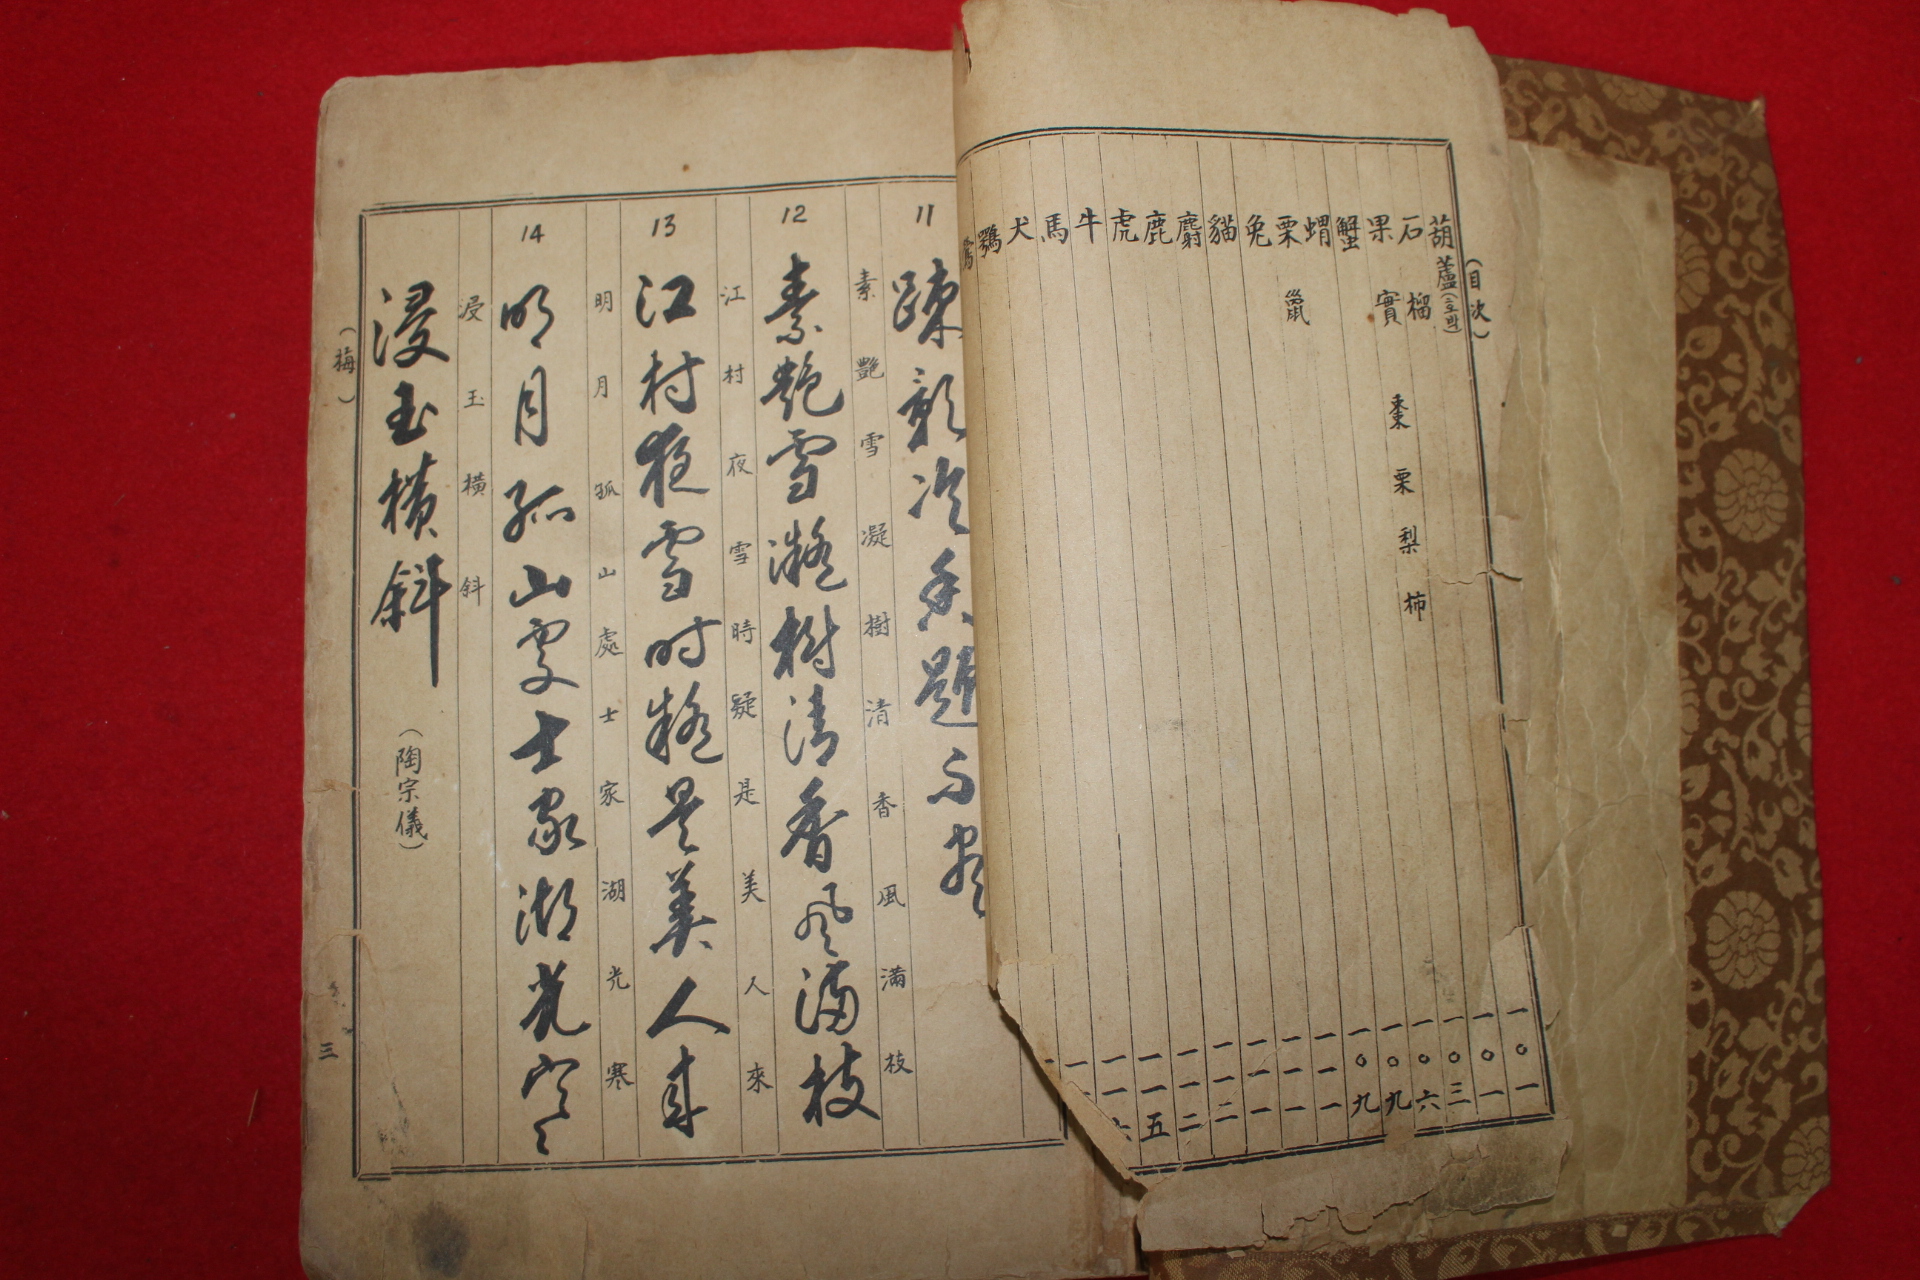 (目次)
葫蘆(호박) 一〇一
石榴 一〇一
果實 棗 栗 梨 柿 一〇三
蟹 一〇六
蝟 一〇九
栗鼠 一〇九
兔 一一一
貓 一一一
麝 一一一
鹿 一一二
虎 一一二
牛 一一五
馬
犬
鶚
11
疎影冷香題不盡
12
素艷雪凝樹清香風滿枝
素艷雪凝樹清香風滿枝
13
江村夜雪時疑是美人來
江村夜雪時疑是美人來
14
明月孤山處士家湖光寒
明月孤山處士家湖光寒
浸玉橫斜
浸玉橫斜 (陶宗儀)
(梅)
三